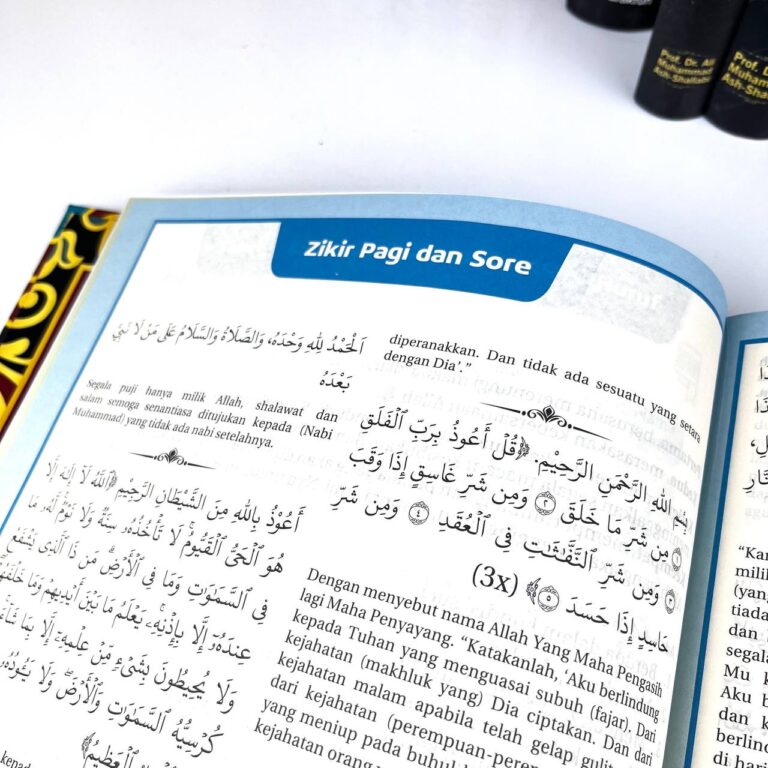 Prof. Dr. Ali
Muhammad
Ash-Shallabi
Zikir Pagi dan Sore
اَلْحَمْدُ لِلَّهِ وَحْدَهُ، وَالصَّلَاةُ وَالسَّلَامُ عَلَى مَنْ لَا نَبِيَّ
بَعْدَهُ
Segala puji hanya milik Allah, shalawat dan
salam semoga senantiasa ditujukan kepada (Nabi
Muhammad) yang tidak ada nabi setelahnya.
أَعُوذُ بِاللَّهِ مِنَ الشَّيْطَانِ الرَّجِيْمِ ﴿ٱللَّهُ لَآ إِلَٰهَ إِلَّا
هُوَ ٱلْحَىُّ ٱلْقَيُّومُ ۚ لَا تَأْخُذُهُۥ سِنَةٌ وَلَا نَوْمٌ ۚ لَّهُۥ مَا
فِى ٱلسَّمَٰوَٰتِ وَمَا فِى ٱلْأَرْضِ ۗ مَن ذَا ٱلَّذِى يَشْفَعُ
عِندَهُۥٓ إِلَّا بِإِذْنِهِۦ ۚ يَعْلَمُ مَا بَيْنَ أَيْدِيهِمْ وَمَا خَلْفَهُمْ ۖ
وَلَا يُحِيطُونَ بِشَىْءٍ مِّنْ عِلْمِهِۦٓ إِلَّا بِمَا شَآءَ ۚ
كُرْسِيُّهُ ٱلسَّمَٰوَٰتِ وَٱلْأَرْضَ ۖ وَلَا يَـُٔودُهُۥ
ٱلْعَظِيمُ﴾
diperanakkan. Dan tidak ada sesuatu yang setara
dengan Dia'."
بِسْمِ اللَّهِ الرَّحْمَنِ الرَّحِيْمِ. ﴿قُلْ أَعُوذُ بِرَبِّ ٱلْفَلَقِ
١ مِن شَرِّ مَا خَلَقَ ٢ وَمِن شَرِّ غَاسِقٍ إِذَا وَقَبَ
٣ وَمِن شَرِّ ٱلنَّفَّٰثَٰتِ فِى ٱلْعُقَدِ ٤ وَمِن شَرِّ
حَاسِدٍ إِذَا حَسَدَ ٥﴾ (3x)
Dengan menyebut nama Allah Yang Maha Pengasih
lagi Maha Penyayang. "Katakanlah, 'Aku berlindung
kepada Tuhan yang menguasai subuh (fajar), Dari
kejahatan (makhluk yang) Dia ciptakan. Dan dari
kejahatan malam apabila telah gelap
dari kejahatan (perempuan-
yang meniup pada
kejahatan orang
milik
(yang
tiada
dan
segala
Mu
Aku
dan
di